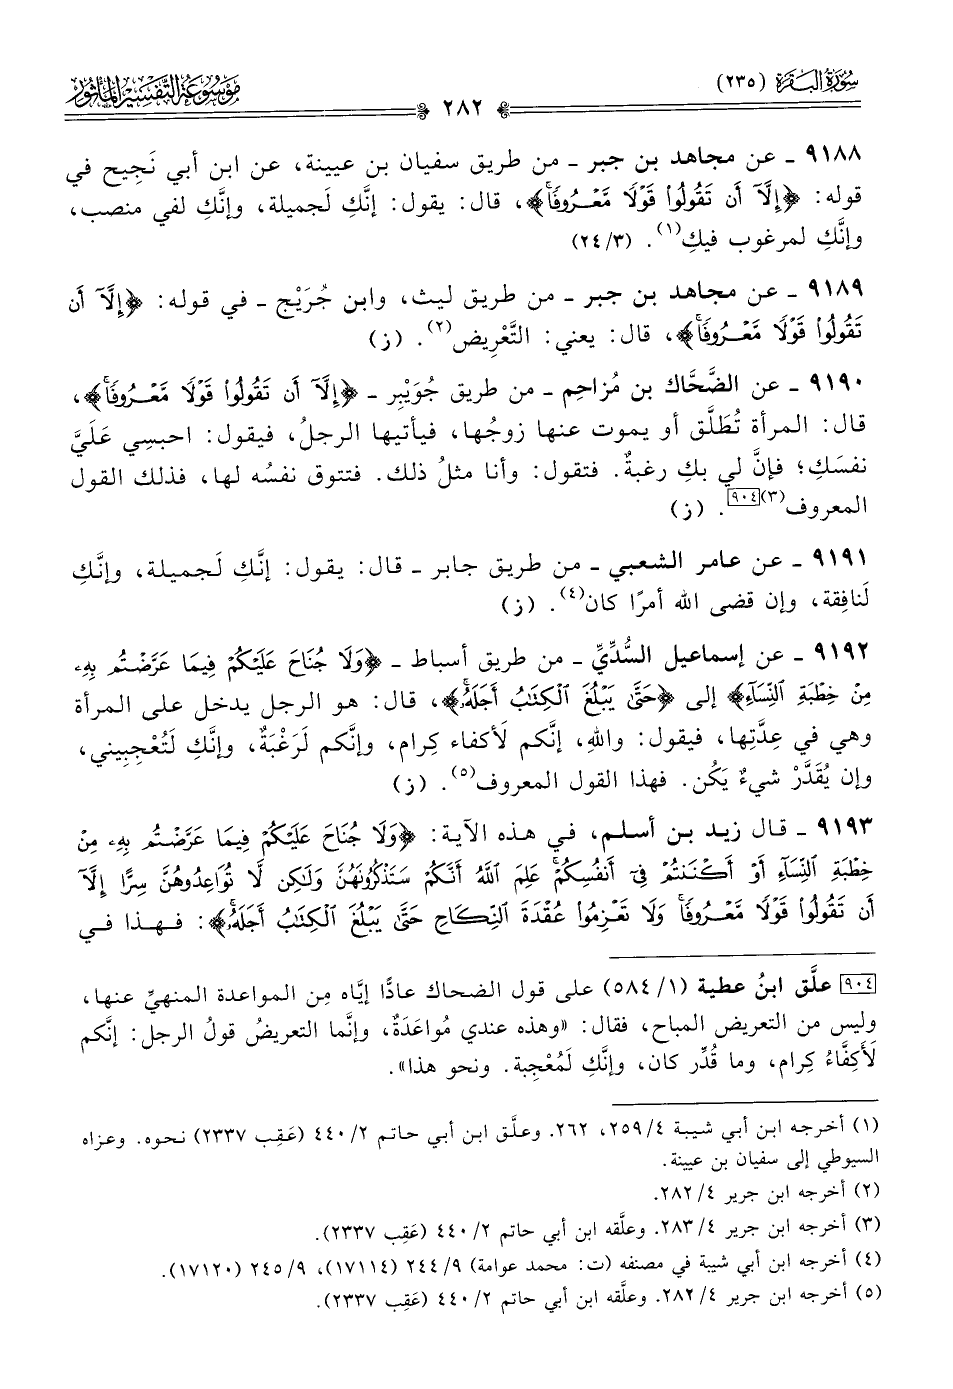 سُورَةُ البَقَرَة (٢٣٥)
٢٨٢
مَوْسُوعَةُ التَّفْسِيرِ المَأْثُور
٩١٨٨ ـ عن مجاهد بن جبر ـ من طريق سفيان بن عيينة، عن ابن أبي نَجيح في
قوله: ﴿إِلَّآ أَن تَقُولُوا۟ قَوْلًا مَّعْرُوفًاۚ﴾، قال: يقول: إنَّكِ لَجميلة، وإنَّكِ لفي منصب،
وإنَّكِ لمرغوب فيكِ(١). (٣/ ٢٤)
٩١٨٩ ـ عن مجاهد بن جبر ـ من طريق ليث، وابن جُرَيْج ـ في قوله: ﴿إِلَّآ أَن
تَقُولُوا۟ قَوْلًا مَّعْرُوفًاۚ﴾، قال: يعني: التَّعْريض(٢). (ز)
٩١٩٠ ـ عن الضَّحَّاك بن مُزاحِم ـ من طريق جُوَيْبِر ـ ﴿إِلَّآ أَن تَقُولُوا۟ قَوْلًا مَّعْرُوفًاۚ﴾،
قال: المرأة تُطَلَّق أو يموت عنها زوجُها، فيأتيها الرجلُ، فيقول: احبسِي عَلَيَّ
نفسَكِ؛ فإنَّ لي بكِ رغبةٌ. فتقول: وأنا مثلُ ذلك. فتتوق نفسُه لها، فذلك القول
المعروف(٣)[٩٠٤]. (ز)
٩١٩١ ـ عن عامر الشعبي ـ من طريق جابر ـ قال: يقول: إنَّكِ لَجميلة، وإنَّكِ
لَنافِقة، وإن قضى الله أمرًا كان(٤). (ز)
٩١٩٢ ـ عن إسماعيل السُّدِّيِّ ـ من طريق أسباط ـ ﴿وَلَا جُنَاحَ عَلَيْكُمْ فِيمَا عَرَّضْتُم بِهِۦ
مِنْ خِطْبَةِ ٱلنِّسَآءِ﴾ إلى ﴿حَتَّىٰ يَبْلُغَ ٱلْكِتَٰبُ أَجَلَهُۥۚ﴾، قال: هو الرجل يدخل على المرأة
وهي في عِدَّتِها، فيقول: واللهِ، إنَّكم لَأكفاء كِرام، وإنَّكم لَرَغْبَةٌ، وإنَّكِ لَتُعْجِبِيني،
وإن يُقَدَّرْ شيءٌ يَكُن. فهذا القول المعروف(٥). (ز)
٩١٩٣ ـ قال زيد بن أسلم، في هذه الآية: ﴿وَلَا جُنَاحَ عَلَيْكُمْ فِيمَا عَرَّضْتُم بِهِۦ مِنْ
خِطْبَةِ ٱلنِّسَآءِ أَوْ أَكْنَنتُمْ فِىٓ أَنفُسِكُمْۚ عَلِمَ ٱللَّهُ أَنَّكُمْ سَتَذْكُرُونَهُنَّ وَلَٰكِن لَّا تُوَاعِدُوهُنَّ سِرًّا إِلَّآ
أَن تَقُولُوا۟ قَوْلًا مَّعْرُوفًاۚ وَلَا تَعْزِمُوا۟ عُقْدَةَ ٱلنِّكَاحِ حَتَّىٰ يَبْلُغَ ٱلْكِتَٰبُ أَجَلَهُۥۚ﴾: فهذا في
[٩٠٤] علَّق ابنُ عطية (١/ ٥٨٤) على قول الضحاك عادًّا إيَّاه مِن المواعدة المنهيِّ عنها،
وليس من التعريض المباح، فقال: «وهذه عندي مُواعَدَةٌ، وإنَّما التعريضُ قولُ الرجل: إنَّكم
لَأَكِفَّاءُ كِرام، وما قُدِّر كان، وإنَّكِ لَمُعْجِبة. ونحو هذا».
(١) أخرجه ابن أبي شيبة ٤/ ٢٥٩، ٢٦٢. وعلّق ابن أبي حاتم ٢/ ٤٤٠ (عَقِب ٢٣٣٧) نحوه. وعزاه
السيوطي إلى سفيان بن عيينة.
(٢) أخرجه ابن جرير ٤/ ٢٨٢.
(٣) أخرجه ابن جرير ٤/ ٢٨٣. وعلَّقه ابن أبي حاتم ٢/ ٤٤٠ (عَقِب ٢٣٣٧).
(٤) أخرجه ابن أبي شيبة في مصنفه (ت: محمد عوامة) ٩/ ٢٤٤ (١٧١١٤)، ٩/ ٢٤٥ (١٧١٢٠).
(٥) أخرجه ابن جرير ٤/ ٢٨٢. وعلَّقه ابن أبي حاتم ٢/ ٤٤٠ (عَقِب ٢٣٣٧).